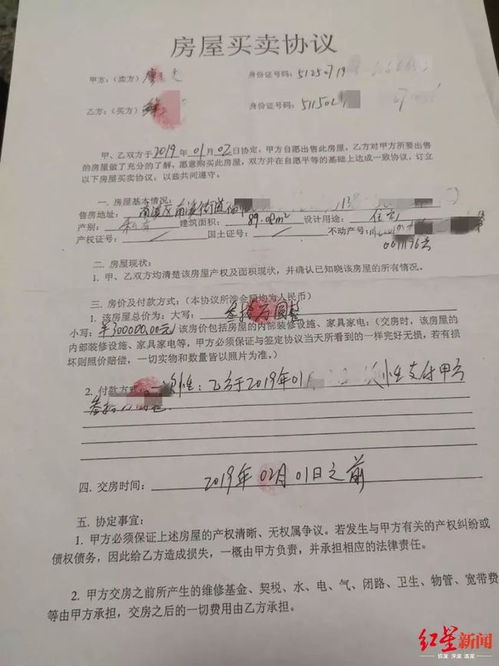 房屋买卖协议
甲方:(卖方) 身份证号码: 51250719
乙方:(买方) 身份证号码: 511502
甲、乙双方于2019年01月02日协定,甲方自愿出售此房屋,乙方对甲方所要出售
的房屋做了充分的了解,愿意购买此房屋,双方并在自愿平等的基础上达成一致协议,订立
以下房屋买卖协议,以兹共同遵守。
一. 房屋基本情况:
售房地址: 南溪区南溪街道
产别: 建筑面积: 89.02m² 设计用途: 住宅
产权证号: 国土证号: 不动产号:
0011176号
二. 房屋现状:
1. 甲、乙双方均清楚该房屋产权及面积现状,并确认已知晓该房屋的所有情况。
三. 房价及付款方式:(本协议所涉金额均为人民币)
1. 该房屋总价为:大写: 叁拾万圆整
小写: ¥300000.00元 该房价包括房屋的内部装修设施、家具家电:(交房时,该房屋的
内部装修设施、家具家电等,甲方必须保证与签定协议当天所看到的一样完好无损,若有损
坏则照价赔偿,一切实物和数量皆以照片为准。)
2. 付款方式: 性:乙方于2019年01 性支付甲方
叁拾万
四. 交房时间: 2019年02月01日之前
五. 协定事宜:
1. 甲方必须保证上述房屋的产权清晰、无权属争议。若发生与甲方有关的产权纠纷或
债权债务,因此给乙方造成损失,一概由甲方负责,并承担相应的法律责任。
2. 甲方交房之前所产生的维修基金、契税、水、电、气、闭路、卫生、物管、宽带费
等由甲方承担,交房之后的一切费用由乙方承担。
红星新闻